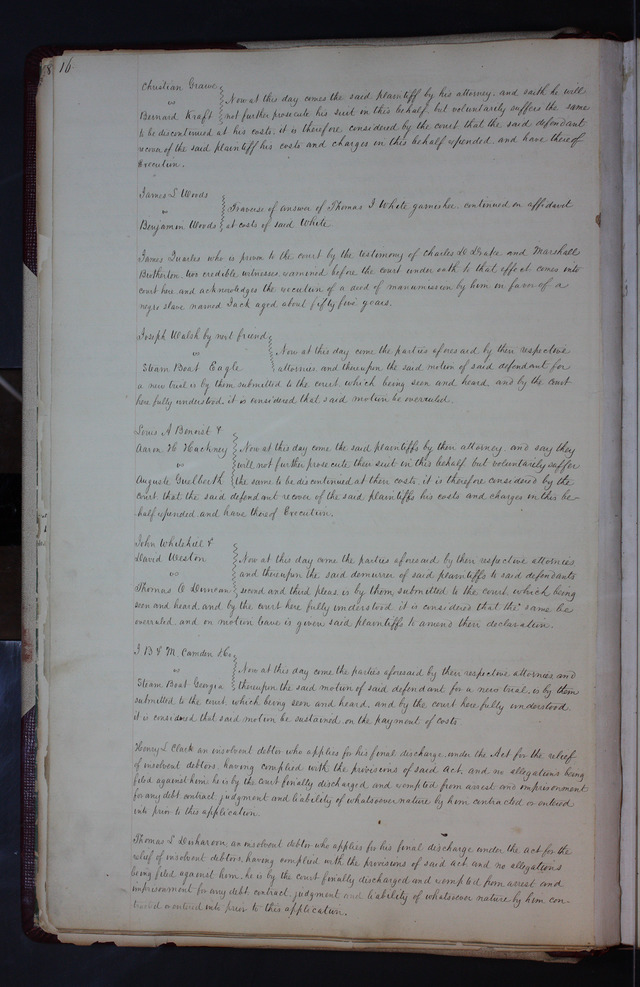 16
Christian Grawe
vs
Bernard Kraft
Now at this day comes the said plaintiff by his attorney, and saith he will
not further prosecute his suit in this behalf, but voluntarily suffers the same
to be discontinued at his costs, it is therefore considered by the court that the said defendant
recover of the said plaintiff his costs and charges in this behalf expended, and have thereof
Execution.
James S Woods
vs
Benjamin Woods
Traverse of answer of Thomas J White garnishee continued on affidavit
at costs of said White
James Quarles who is proven to the court by the testimony of Charles D Drake and Marshall
Brotherton, two credible witnesses, examined before the court under oath to that effect comes into
court here and acknowledges the execution of a deed of manumission by him in favor of a
negro slave named Jack aged about fifty five years.
Joseph Walsh by next friend
vs
Steam Boat Eagle
Now at this day come the parties aforesaid by their respective
attornies, and thereupon the said motion of said defendant for
a new trial is by them submitted to the court which being seen and heard, and by the court
here fully understood, it is considered that said motion be overruled.
Louis A Benoist &
Aaron H Hackney
vs
Auguste Guelberth
Now at this day come the said plaintiffs by their attorney, and say they
will not further prosecute their suit in this behalf but voluntarily suffer
the same to be discontinued at their costs, it is therefore considered by the
court, that the said defendant recover of the said plaintiffs his costs and charges in this be-
half expended and have thereof Execution.
John Whitehill &
David Weston
vs
Thomas O Duncan
Now at this day come the parties aforesaid by their respective attornies
and thereupon the said demurrer of said plaintiffs to said defendants
second and third pleas, is by them submitted to the court, which being
seen and heard, and by the court here fully understood, it is considered that the same be
overruled, and on motion leave is given said plaintiffs to amend their declaration.
J. B & M. Camden & Co
vs
Steam Boat Georgia
Now at this day come the parties aforesaid by their respective attornies, and
thereupon the said motion of said defendant for a new trial, is by them
submitted to the court, which being seen and heard, and by the court here fully understood
it is considered that said motion be sustained on the payment of costs
Henry L Clark an insolvent debtor who applies for his final discharge, under the Act for the relief
of insolvent debtors, having complied with the provisions of said Act, and no allegations being
filed against him, he is by the Court finally discharged and exempted from arrest and imprisonment
for any debt contract, judgment and liability of whatsoever nature by him contracted or entered
into prior to this application.
Thomas L an insolvent debtor who applies for his final discharge under the act for the
relief of insolvent debtors, having complied with the provisions of said act and no allegations
being filed against him, he is by the court finally discharged and exempted from arrest and
imprisonment for any debt, contract, judgment and liability of whatsoever nature by him con-
tracted or entered into prior to this application.